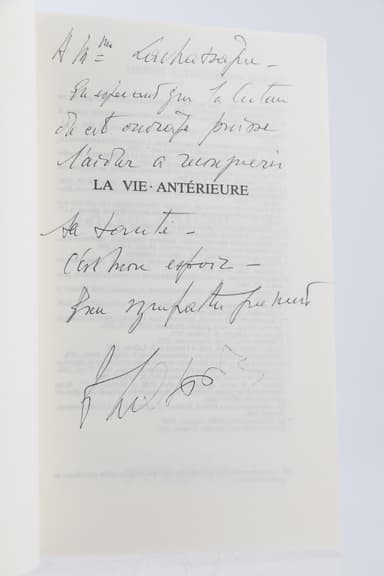 A Mme Lachassagne -
En esperant que la lecture
de cet ouvrage puisse
l'aider a recuperer
LA VIE · ANTÉRIEURE
sa santé -
C'est mon espoir -
Bien sympathiquement